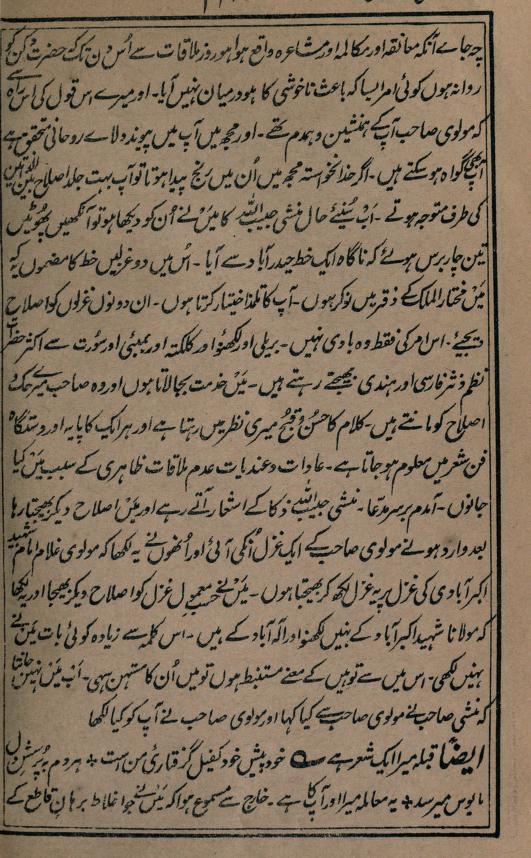 چہ جاے آنکہ معانقہ اور مکالمہ اور مشاعرہ واقع ہوا ہو روز ملاقات سے اُس دن تک کہ حضرت دکن کو
روانہ ہوں کوئی امر ایسا کہ باعث ناخوشی کا ہو درمیان نہیں آیا۔ اور میرے اس قول کی اس راہ سے
کہ مولوی صاحب آپکے ہمنشین و ہمدم تھے۔ اور مجھ میں آپ میں پیوند ولاے روحانی متحقق ہے
آپ بھی گواہ ہو سکتے ہیں۔ اگر خدانخواستہ مجھ میں اُن میں رنج پیدا ہوتا تو آپ بہت جلد اصلاح بین الاثنین
کی طرف متوجہ ہوتے۔ اب سُنیئے حال منشی حبیب اللہ کا مَیں نے اُن کو دیکھا ہو تو آنکھیں پھوٹیں
تین چار برس ہوئے کہ ناگاہ ایک خط حیدرآباد سے آیا۔ اُس میں دو غزلیں خط کا مضمون یہ کہ
مَیں مختار الملک کے دفتر میں نوکر ہوں۔ آپ کا تلمذ اختیار کرتا ہوں۔ ان دونوں غزلوں کو اصلاح
دیجیئے۔ اس امر کی فقط وہ بادی نہیں۔ بریلی اور لکھنؤ اور کلکتہ اور بمبئی اور سُورت سے اکثر حضرات
نظم و نثر فارسی اور ہندی بھیجتے رہتے ہیں۔ مَیں خدمت بجا لاتا ہوں اور وہ صاحب میرے حک و
اصلاح کو مانتے ہیں۔ کلام کا حُسن و قبح میری نظر میں رہتا ہے اور ہر ایک کا پایہ اور دستگاہ
فن شعر میں معلوم ہو جاتا ہے۔ عادات و عندیات عدم ملاقات ظاہری کے سبب مَیں کیا
جانوں۔ آمدم برسر مدّعا۔ منشی حبیب اللہ ذکا کے اشعار آتے رہے اور مَیں اصلاح دیکر بھیجتا رہا
بعد وارد ہونے مولوی صاحب کے ایک غزل اُنکی آئی اور اُنھوں نے یہ لکھا کہ مولوی غلام امام شہید
اکبرآبادی کی غزل پر یہ غزل لکھ کر بھیجتا ہوں۔ مَیں نے حسب معمول غزل کو اصلاح دیکر بھیجا اور یہ لکھا
کہ مولانا شہید اکبرآباد کے نہیں لکھنؤ اور الہ آباد کے ہیں۔ اس کلمہ سے زیادہ کوئی بات مَیں نے
نہیں لکھی۔ اس میں سے توہین کے معنے مستنبط ہوں تو میں اُن کا مستہن سہی۔ اب مَیں نہیں جانتا
کہ منشی صاحب نے مولوی صاحب سے کیا کہا اور مولوی صاحب نے آپ کو کیا لکھا
ایضاً قبلہ میرا ایک شعر ہے ؎ خود پیش خود کفیل گرفتاری من ست ٭ ہر دم بہ پرسش دل
مایوس میرسد ٭ یہ معاملہ میرا اور آپ کا ہے۔ خارج سے مسموع ہوا کہ مَیں نے جو اغلاط برہان قاطع کے